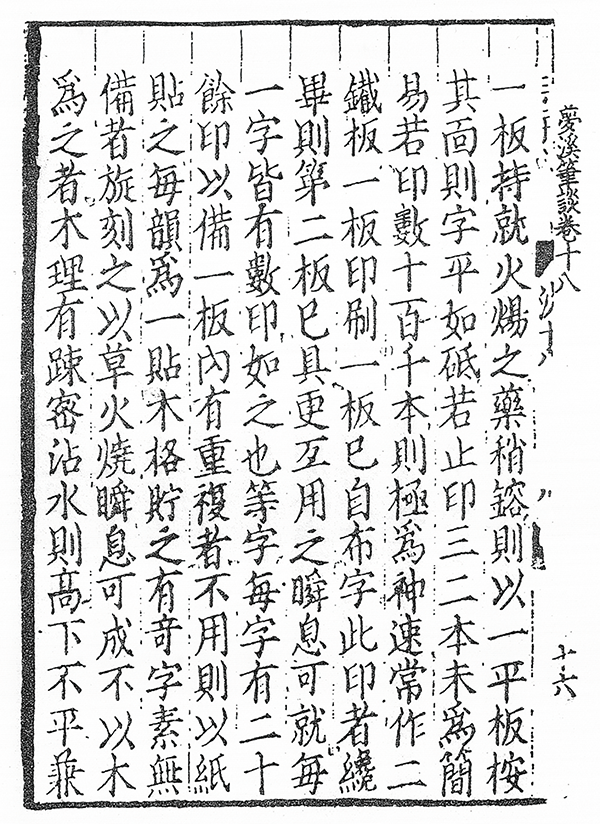 夢溪筆談卷十八
十六
一板持就火煬之藥稍鎔則以一平板桉
其面則字平如砥若止印三二本未爲簡
易若印數十百千本則極爲神速常作二
鐵板一板印刷一板已自布字此印者纔
畢則第二板已具更互用之瞬息可就每
一字皆有數印如之也等字每字有二十
餘印以備一板內有重複者不用則以紙
貼之每韻爲一貼木格貯之有竒字素無
備者旋刻之以草火燒瞬息可成不以木
爲之者木理有踈密沾水則髙下不平兼